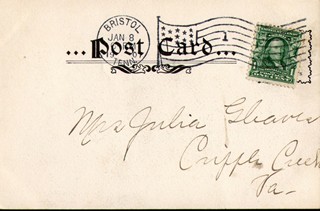 BRISTOL
JAN 8
TENN.
1
...Post Card...
1
Mrs Julia Gleaves
Cripple Creek
Va-